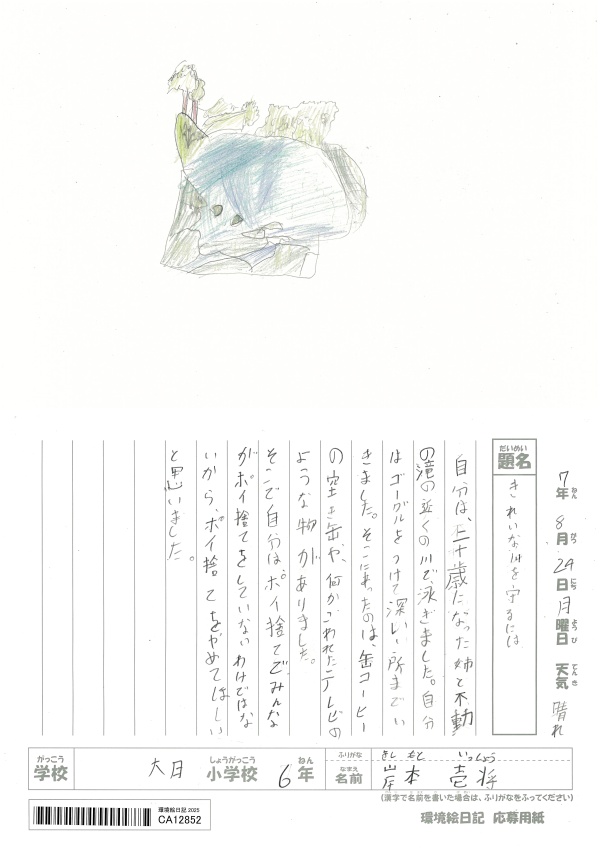 7年 8月 24日 月曜日 天気 晴れ
ねん がつ にち ようび てんき
だいめい
題名
きれいな川を守るには
自分は、二十歳になった姉と不動
の滝の近くの川で、泳ぎました。自分
はゴーグルをつけて深い所までい
きました。そこにあったのは、缶コーヒー
の空き缶や、何かこわれたテレビの
ような物がありました。
そこで自分は、ポイ捨てでみんな
がポイ捨てをしていないわけではな
いから、ポイ捨てをやめてほしい
と思いました。
がっこう
学校
大日
しょうがっこう
小学校
6年
ねん
ふりがな
きし もと いっしょう
なまえ
名前
岸本 壱将
(漢字で名前を書いた場合は、ふりがなをふってください)
環境絵日記 2025
CA12852
環境絵日記 応募用紙